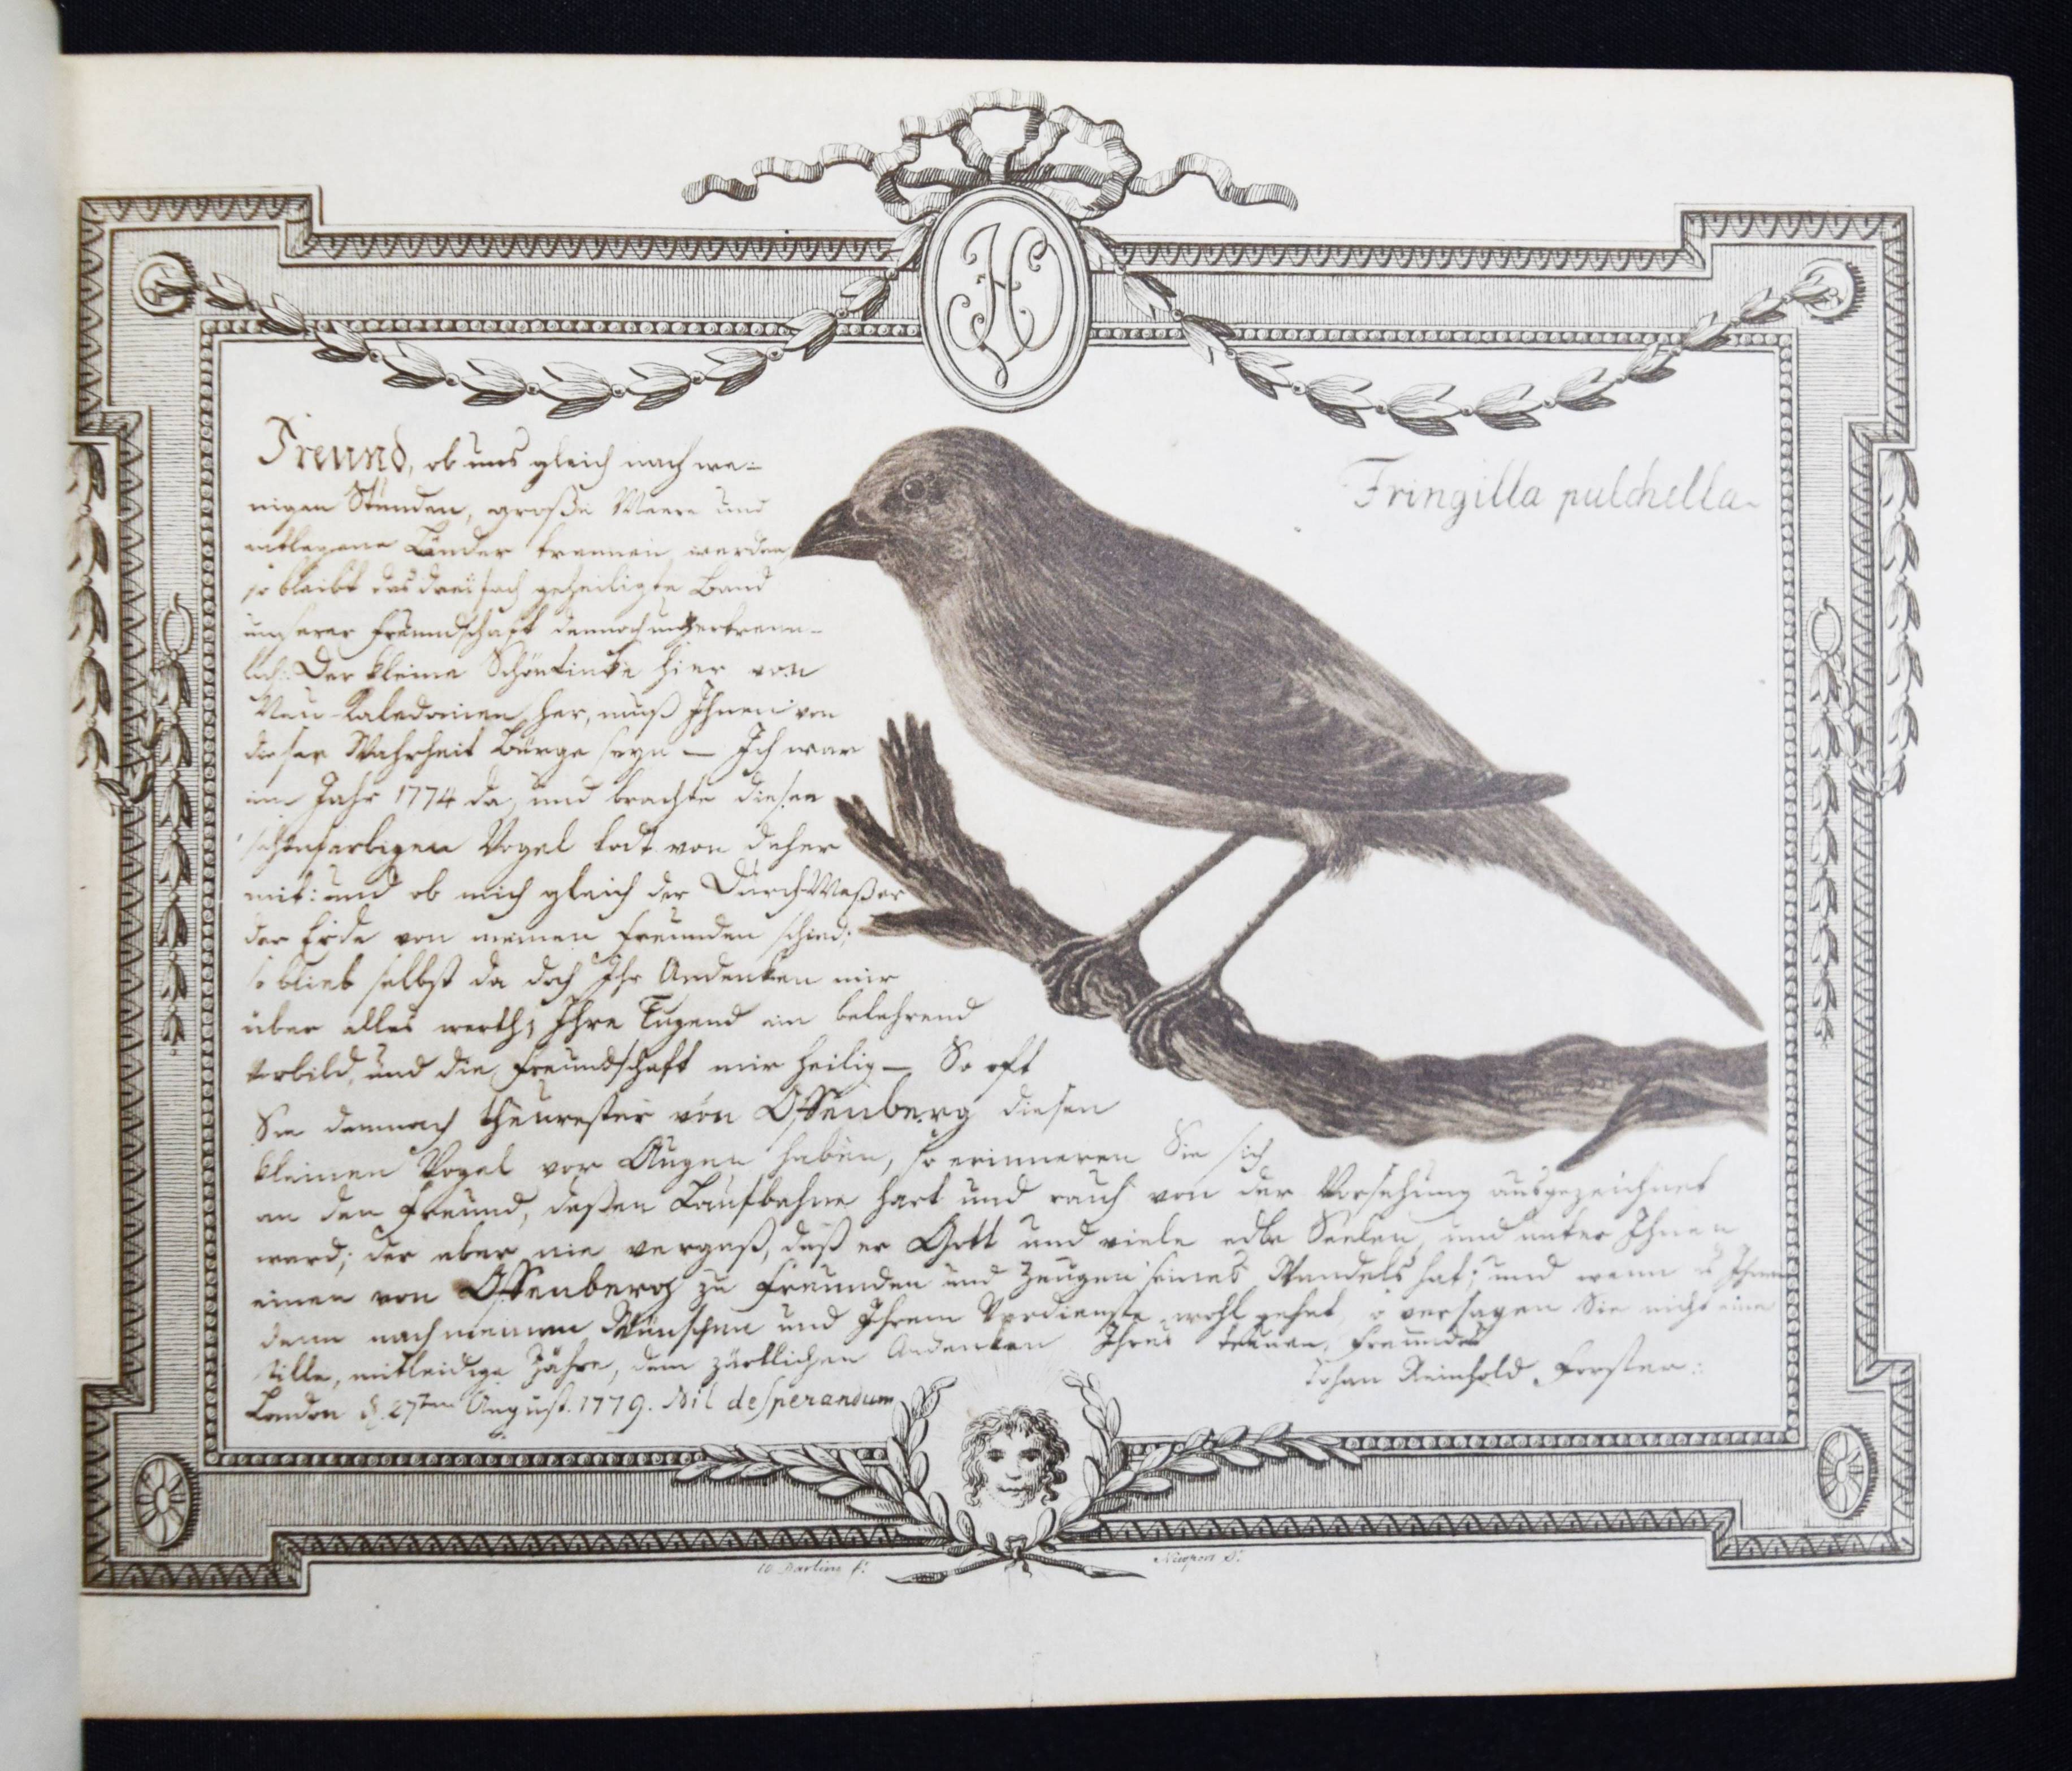 H
Fringilla pulchella
Freund, ob uns gleich nach we=
nigen Stunden, große Meere und
entlegene Länder trennen werden,
so bleibt das dreifach geheiligte Band
unserer Freundschaft dennoch unzertrenn-
lich. Der kleine Schönfinke hier von
Neu-Kaledonien her, muß Ihnen von
dieser Wahrheit Bürge seyn — Ich war
im Jahr 1774 da, und brachte diesen
schönfarbigen Vogel todt von daher
mit: und ob mich gleich der Durch-Meßer
der Erde von meinen Freunden schied;
so blieb selbst da doch Ihr Andenken mir
über alles werth, Ihre Tugend ein belehrend
Vorbild, und die Freundschaft mir heilig — So oft
Sie demnach theurester von Offenberg diesen
kleinen Vogel vor Augen haben, so erinneren Sie sich
an den Freund, deßen Laufbahne hart und rauh von der Vorsehung ausgezeichnet
ward; der aber nie vergaß, daß er Gott und viele edle Seelen, und unter Ihnen
einen von Offenberg zu Freunden und Zeugen seines Wandels hat; und wenn es Ihnen
denn nach meinen Wünschen und Ihrem Verdienste wohl gehet, so versagen Sie nicht eine
stille, mitleidige Zähre, dem zärtlichen Andenken Ihres treuen Freundes
Johan Reinhold Forster.
London d. 27ten August. 1779. Nil desperandum